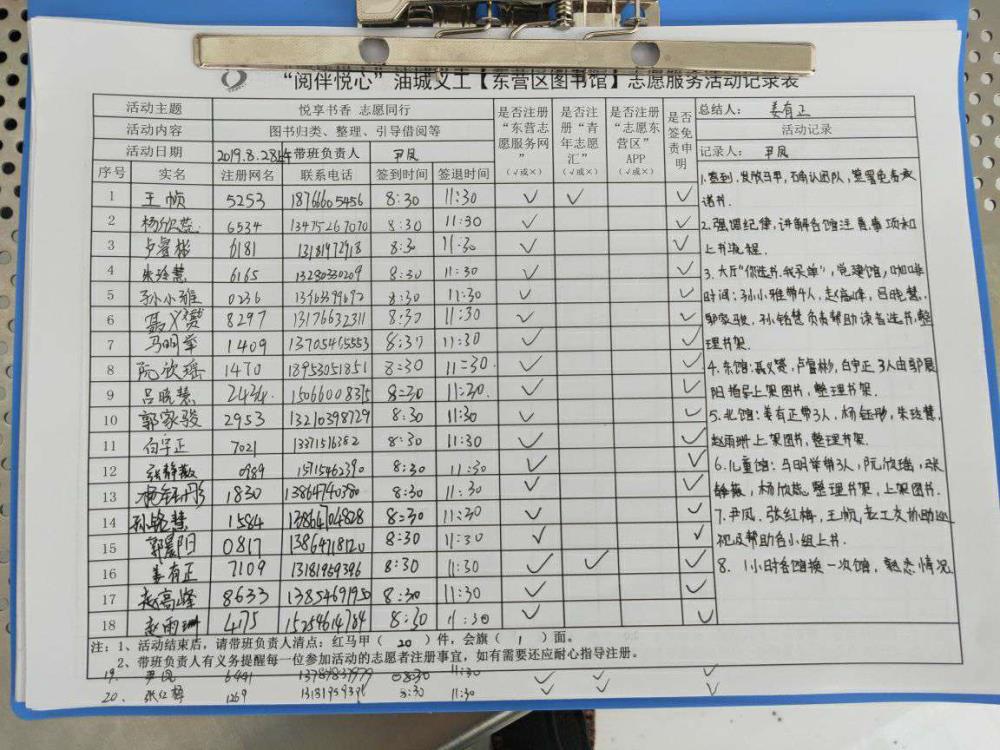 “阅伴悦心”油城义工【东营区图书馆】志愿服务活动记录表
活动主题 悦享书香 志愿同行 是否注册“东营志愿服务网”（√或×） 是否注册“青年志愿汇”（√或×） 是否注册“志愿东营区”APP（√或×） 是否签免责申明 总结人： 姜有正
活动内容 图书归类、整理、引导借阅等 活动记录
活动日期 2019.8.28 带班负责人 尹凤 记录人： 尹凤
序号 实名 注册网名 联系电话 签到时间 签退时间
1 王帧 5253 18766605456 8:30 11:30 √ √ √
2 杨欣蕊 6534 13475267070 8:30 11:30 √ √
3 卢睿彬 6181 13181972918 8:30 11:30 √ √
4 朱玲慧 6165 13280330209 8:30 11:30 √ √
5 孙小雅 0236 8:30 11:30 √ √
6 8297 13176632311 8:30 11:30 √ √
7 马明举 1409 13705465553 8:30 11:30 √ √
8 阮欣瑶 1470 13953051851 8:30 11:30 √ √
9 吕晓慧 2434 15066008375 8:30 11:30 √ √
10 郭家骏 2953 13210398729 8:30 11:30 √ √
11 白宇正 7021 13371516382 8:30 11:30 √ √
12 张静薇 0989 15715462390 8:30 11:30 √ √
13 杨钰彤 1830 13864740380 8:30 11:30 √ √
14 孙铭慧 1584 13864704828 8:30 11:30 √ √
15 郭晨阳 0817 13864718120 8:30 11:30 √ √
16 姜有正 7109 13181959396 8:30 11:30 √ √ √
17 赵高峰 8633 13854691950 8:30 11:30 √ √
18 赵雨珊 4175 15254614784 8:30 11:30 √ √
1.签到.发放马甲,确认团队,签署免责承
诺书.
2.强调纪律,讲解各馆注意事项和
上书流程.
3.大厅“你选书.我买单”,党建馆,咖啡
时间:孙小雅带4人,赵高峰,吕晓慧,
郭家骏,孙铭慧负责帮助读者选书,整
理书架.
4.东馆:卢睿彬,白宇正,3人由郭晨
阳指导上架图书,整理书架.
5.北馆:姜有正带3人,杨钰彤,朱玲慧,
赵雨珊上架图书,整理书架.
6.儿童馆:马明举带3人,阮欣瑶,张
静薇,杨欣蕊整理书架,上架图书.
7.尹凤.张红梅,王帧,志工友协助巡
视及帮助各小组上书.
8. 1小时各馆换一次馆,熟悉情况
注：1、活动结束后，请带班负责人清点：红马甲（ 20 ）件，会旗（ 1 ）面。
2、带班负责人有义务提醒每一位参加活动的志愿者注册事宜，如有需要还应耐心指导注册。
19. 尹凤 6441 8:30 11:30 √ √ √
20. 张红梅 1269 8:30 11:30 √ √ √